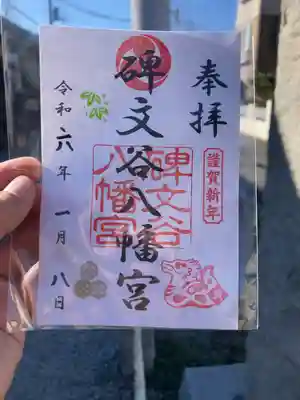 奉拝
謹賀新年
碑文谷八幡宮
碑文谷
八幡宮
令和六年一月八日